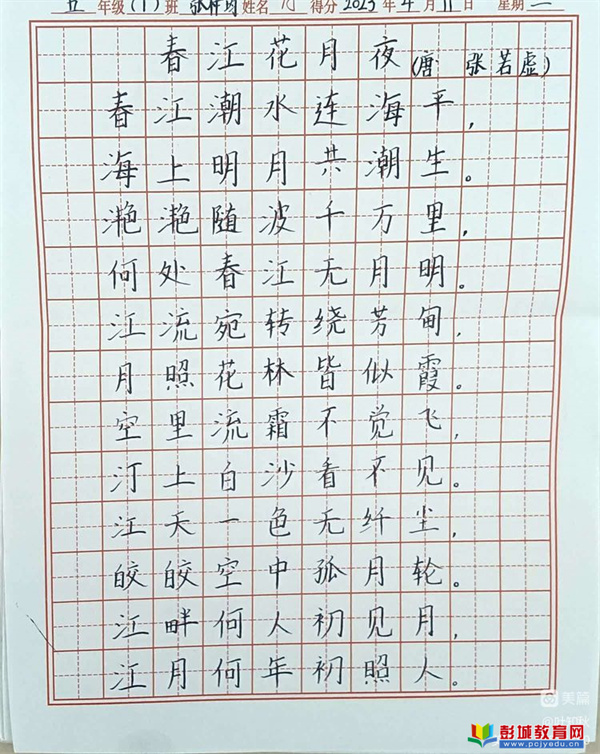 五 年级(1)班 姓名 得分 2023年4月11日 星期二
春江花月夜(唐 张若虚)
春江潮水连海平，
海上明月共潮生。
滟滟随波千万里，
何处春江无月明。
江流宛转绕芳甸，
月照花林皆似霞。
空里流霜不觉飞，
汀上白沙看不见。
江天一色无纤尘，
皎皎空中孤月轮。
江畔何人初见月，
江月何年初照人。
美篇
彭城教育网
www.pcjyedu.cn